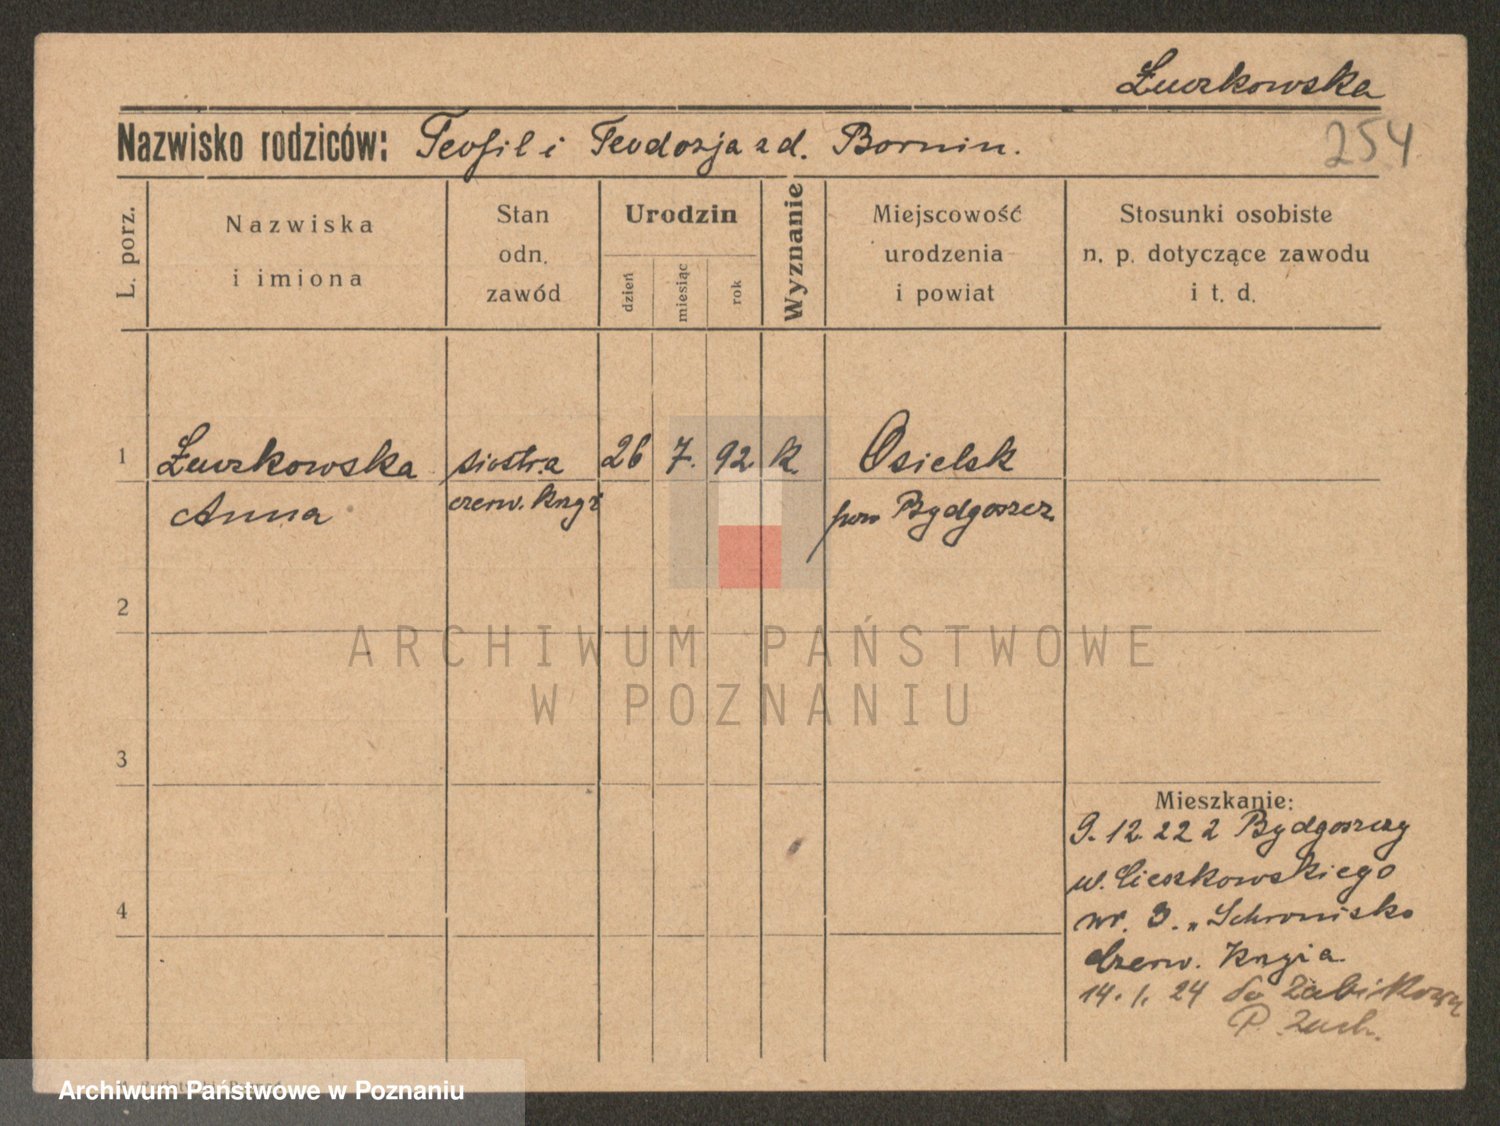 Żurkowska
Nazwisko rodziców: Teofil i Teodozja z d. Bornin.
254
L. porz.
Nazwiska
i imiona
Stan
odn.
zawód
Urodzin
dzień
miesiąc
rok
Wyznanie
Miejscowość
urodzenia
i powiat
Stosunki osobiste
n. p. dotyczące zawodu
i t. d.
1 Żurkowska siostra 26 7. 92. k. Osielsk
Anna czerw. krzyż pow Bydgoszcz
2
ARCHIWUM PAŃSTWOWE
W POZNANIU
3
Mieszkanie:
9. 12. 22 z Bydgoszczy
ul. Cieszkowskiego
4
nr. 3. „Schronisko
Czerw. Krzyża
14. 1. 24 do Żabikowa
P. Zach.
Archiwum Państwowe w Poznaniu